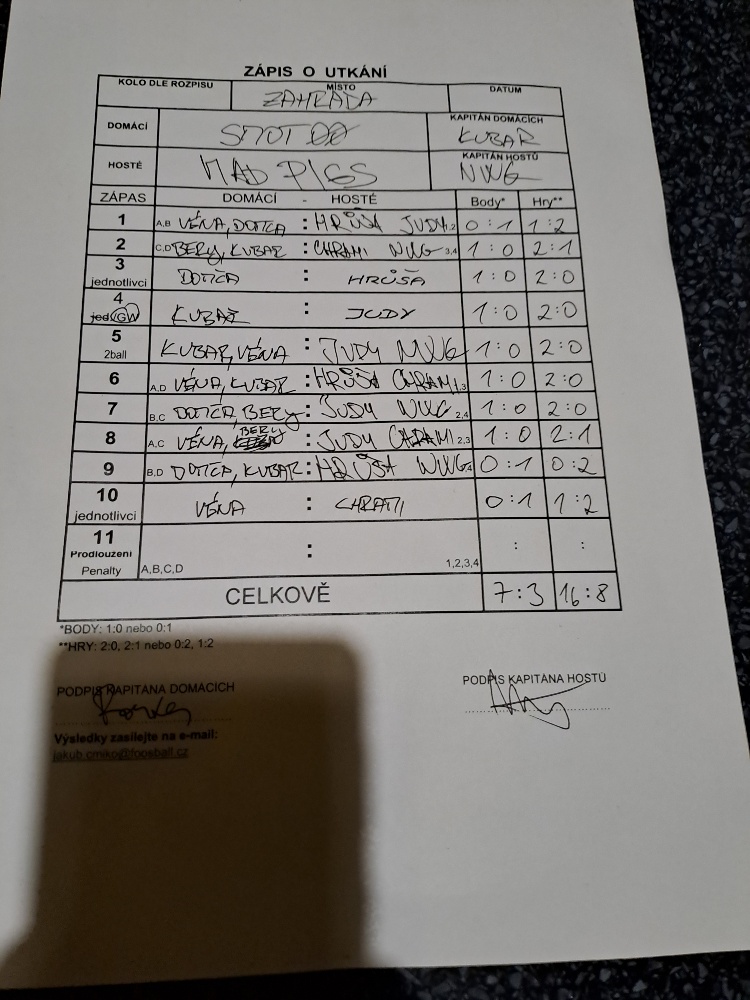 ZÁPIS O UTKÁNÍ
KOLO DLE ROZPISU MÍSTO DATUM
ZAHRADA
DOMÁCÍ KAPITÁN DOMÁCÍCH
KUBAR
HOSTÉ MAD PIGS KAPITÁN HOSTŮ
NWG
ZÁPAS DOMÁCÍ - HOSTÉ Body* Hry**
1 A,B VÉNA, DOTČA : HRŮŠA JUDY 1,2 0:1 1:2
2 C,D BERY, KUBAR : CHRAMI NWG 3,4 1:0 2:1
3 jednotlivci DOTČA : HRŮŠA 1:0 2:0
4 jed/GW KUBAR : JUDY 1:0 2:0
5 2ball KUBAR, VÉNA : JUDY NWG 1:0 2:0
6 A,D VÉNA, KUBAR : HRŮŠA CHRAMI 1,3 1:0 2:0
7 B,C DOTČA, BERY : JUDY NWG 2,4 1:0 2:0
8 A,C VÉNA, BERY : JUDY CHRAMI 2,3 1:0 2:1
9 B,D DOTČA, KUBAR : HRŮŠA NWG 0:1 0:2
10 jednotlivci VÉNA : CHRAMI 0:1 1:2
11 Prodloužení Penalty A,B,C,D : 1,2,3,4 : :
CELKOVĚ 7:3 16:8
*BODY: 1:0 nebo 0:1
**HRY: 2:0, 2:1 nebo 0:2, 1:2
PODPIS KAPITÁNA DOMÁCÍCH PODPIS KAPITÁNA HOSTŮ
Výsledky zasílejte na e-mail: